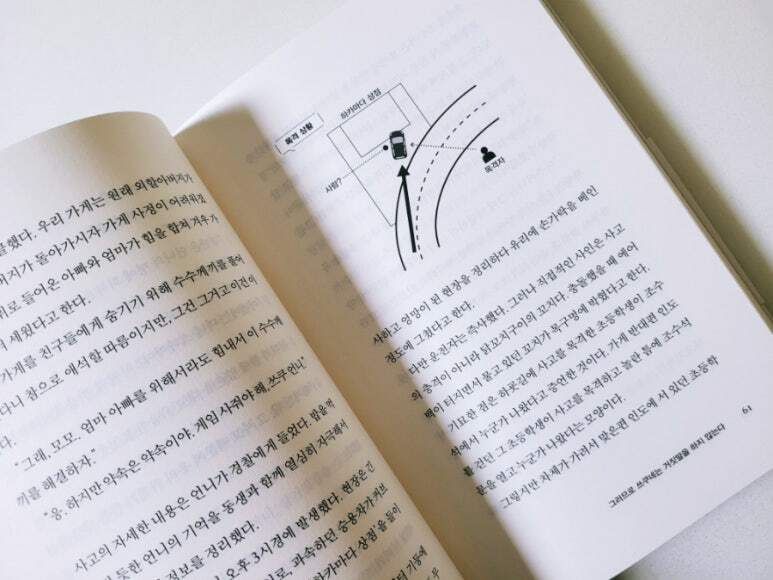 했다. 우리 가게는 원래 외할아버지가
버지가 돌아가시자 가게 사정이 어려워졌
위로 들어온 아빠와 엄마가 힘을 합쳐 겨우 가
세웠다고 한다.
가게를 친구들에게 숨기기 위해 수수께끼를 풀어
다니 참으로 애석할 따름이지만, 그건 그거고 이건 이
다.
"그래, 모모. 엄마 아빠를 위해서라도 힘내서 이 수수께
끼를 해결하자."
"응. 하지만 약속은 약속이야. 게임 사줘야 해, 쓰쿠 언니."
사고의 자세한 내용은 언니가 경찰에게 들었다.
듯한 언니의 기억을 동생과 함께 열심히 자극해서
정보를 정리했다.
오후 3시경에 발생했다. 현장은 긴
로, 과속하던 승용차가 커브
하카마다 상점'을 들이
목격 상황
하카마다 상점
사람?
목격자
사하고 엉망이 된 현장을 정리하다 유리에 손가락을 베인
정도에 그쳤다고 한다.
다만 운전자는 즉사했다. 그러나 직접적인 사인은 사고
의 충격이 아니라 닭꼬치구이의 꼬치다. 충돌했을 때 에어
백이 터지면서 물고 있던 꼬치가 목구멍에 박혔다고 한다.
기묘한 점은 하굣길에 사고를 목격한 초등학생이 조수
석에서 누군가 나왔다고 증언한 것이다. 가게 반대편 인도
를 걷던 그 초등학생이 사고를 목격하고 놀란 틈에 조수석
문을 열고 누군가 나왔다는 모양이다.
그렇지만 차체가 가려서 맞은편 인도에 서 있던 초등학
그러므로 쓰쿠네는 거짓말을 하지 않는다
61